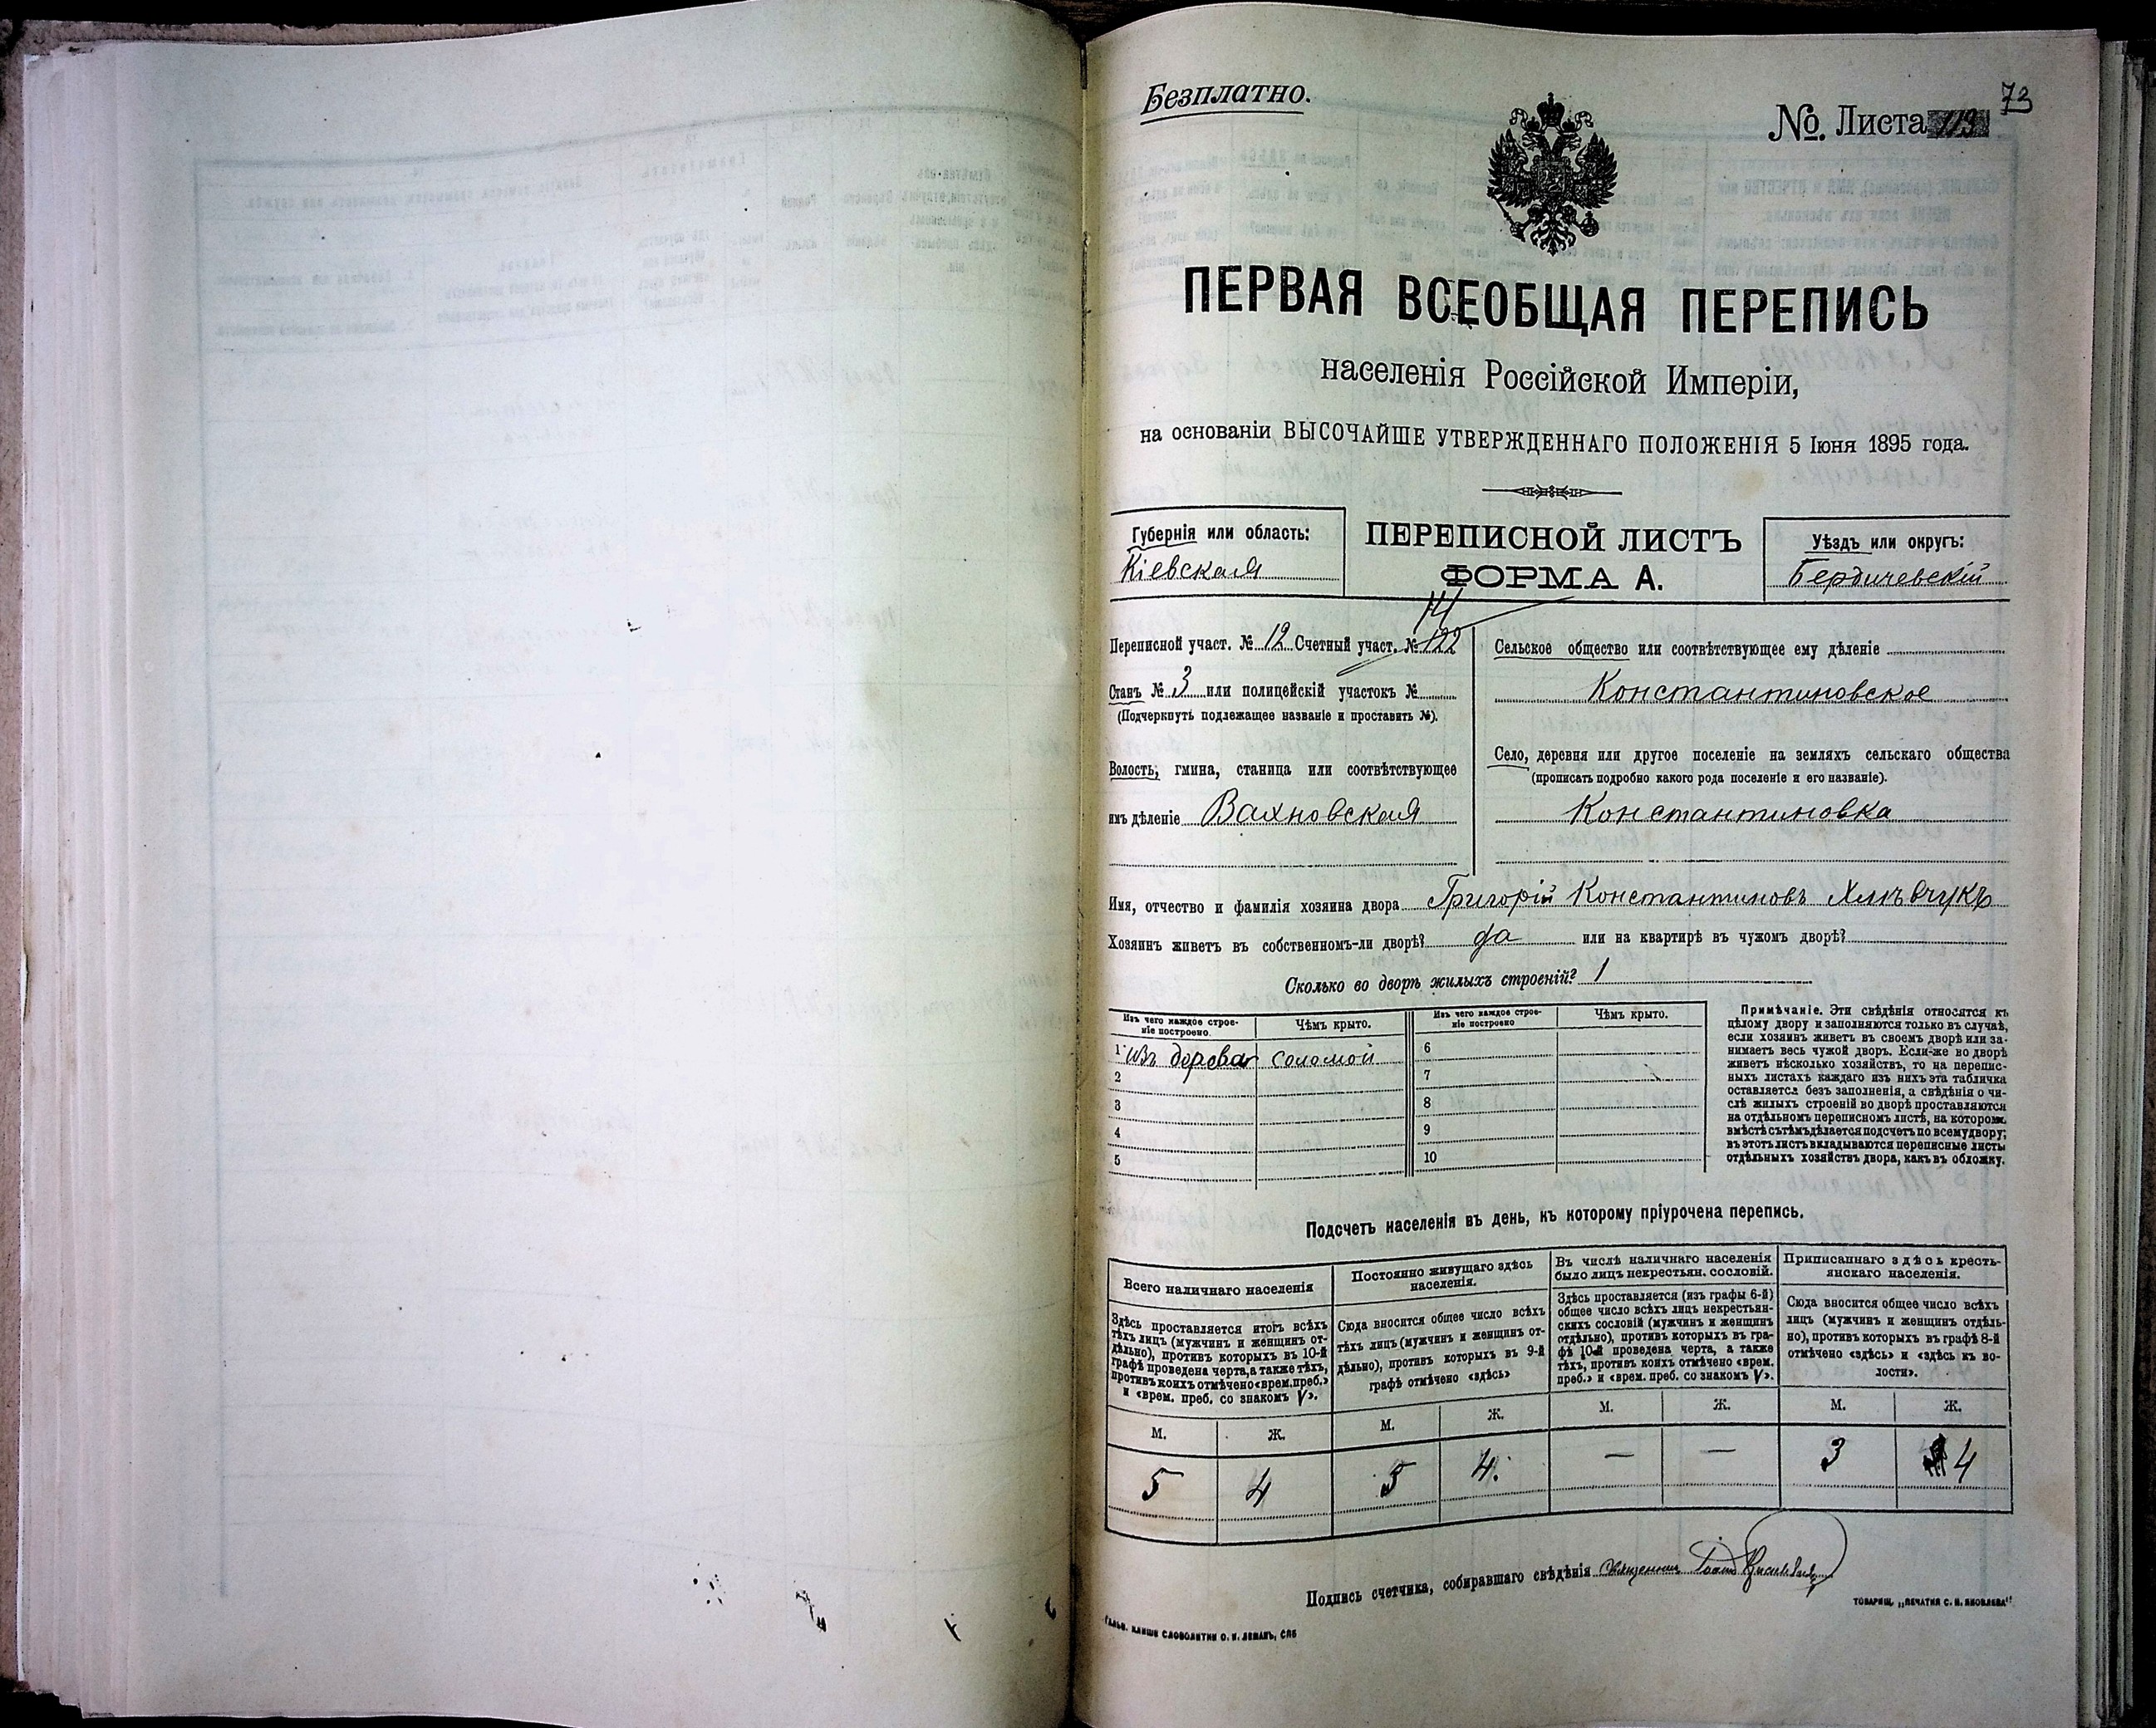 Безплатно.
73
№. Листа 113
ПЕРВАЯ ВСЕОБЩАЯ ПЕРЕПИСЬ
населенія Россійской Имперіи,
на основаніи ВЫСОЧАЙШЕ УТВЕРЖДЕННАГО ПОЛОЖЕНІЯ 5 Іюня 1895 года.
Губернія или область:
Кіевская
ПЕРЕПИСНОЙ ЛИСТЪ
ФОРМА А.
Уѣздъ или округъ:
Бердичевскій
14
Переписной участ. № 12 Счетный участ. № 122
Станъ № 3 или полицейскій участокъ №
(Подчеркнуть подлежащее названіе и проставить №).
Волость, гмина, станица или соотвѣтствующее
имъ дѣленіе Вахновская
Сельское общество или соотвѣтствующее ему дѣленіе
Константиновское
Село, деревня или другое поселеніе на земляхъ сельскаго общества
(прописать подробно какого рода поселеніе и его названіе).
Константиновка
Имя, отчество и фамилія хозяина двора Григорій Константиновъ
Хозяинъ живетъ въ собственномъ-ли дворѣ? да или на квартирѣ въ чужомъ дворѣ?
Сколько во дворѣ жилыхъ строеній? 1
Изъ чего каждое строе-
ніе построено.
Чѣмъ крыто.
Изъ чего каждое строе-
ніе построено
Чѣмъ крыто.
1 изъ дерева соломой
2
3
4
5
6
7
8
9
10
Примѣчаніе. Эти свѣдѣнія относятся къ
цѣлому двору и заполняются только въ случаѣ,
если хозяинъ живетъ въ своемъ дворѣ или за-
нимаетъ весь чужой дворъ. Если-же во дворѣ
живетъ нѣсколько хозяйствъ, то на перепис-
ныхъ листахъ каждаго изъ нихъ эта табличка
оставляется безъ заполненія, а свѣдѣнія о чи-
слѣ жилыхъ строеній во дворѣ проставляются
на отдѣльномъ переписномъ листѣ, на которомъ
вмѣстѣ съ тѣмъ дѣлается подсчетъ по всему двору;
въ этотъ листъ вкладываются переписные листы
отдѣльныхъ хозяйствъ двора, какъ въ обложку.
Подсчетъ населенія въ день, къ которому пріурочена перепись.
Всего наличнаго населенія
Здѣсь проставляется итогъ всѣхъ
тѣхъ лицъ (мужчинъ и женщинъ от-
дѣльно), противъ которыхъ въ 10-й
графѣ проведена черта, а также тѣхъ,
противъ коихъ отмѣчено «врем. преб.»
и «врем. преб. со знакомъ V».
М. Ж.
5 4
Постоянно живущаго здѣсь
населенія.
Сюда вносится общее число всѣхъ
тѣхъ лицъ (мужчинъ и женщинъ от-
дѣльно), противъ которыхъ въ 9-й
графѣ отмѣчено «здѣсь»
М. Ж.
5 4.
Въ числѣ наличнаго населенія
было лицъ некрестьян. сословій.
Здѣсь проставляется (изъ графы 6-й)
общее число всѣхъ лицъ некрестьян-
скихъ сословій (мужчинъ и женщинъ
отдѣльно), противъ которыхъ въ гра-
фѣ 10-й проведена черта, а также
тѣхъ, противъ коихъ отмѣчено «врем.
преб.» и «врем. преб. со знакомъ V».
М. Ж.
— —
Приписаннаго здѣсь кресть-
янскаго населенія.
Сюда вносится общее число всѣхъ
лицъ (мужчинъ и женщинъ отдѣль-
но), противъ которыхъ въ графѣ 8-й
отмѣчено «здѣсь» и «здѣсь къ во-
лости».
М. Ж.
3 4
Подпись счетчика, собиравшаго свѣдѣнія
ТОВАРИЩ. „ПЕЧАТНЯ С. П. ЯКОВЛЕВА"
ГАЛЬВ. КЛИШЕ СЛОВОЛИТНИ О. И. ЛЕМАНЪ, СПБ